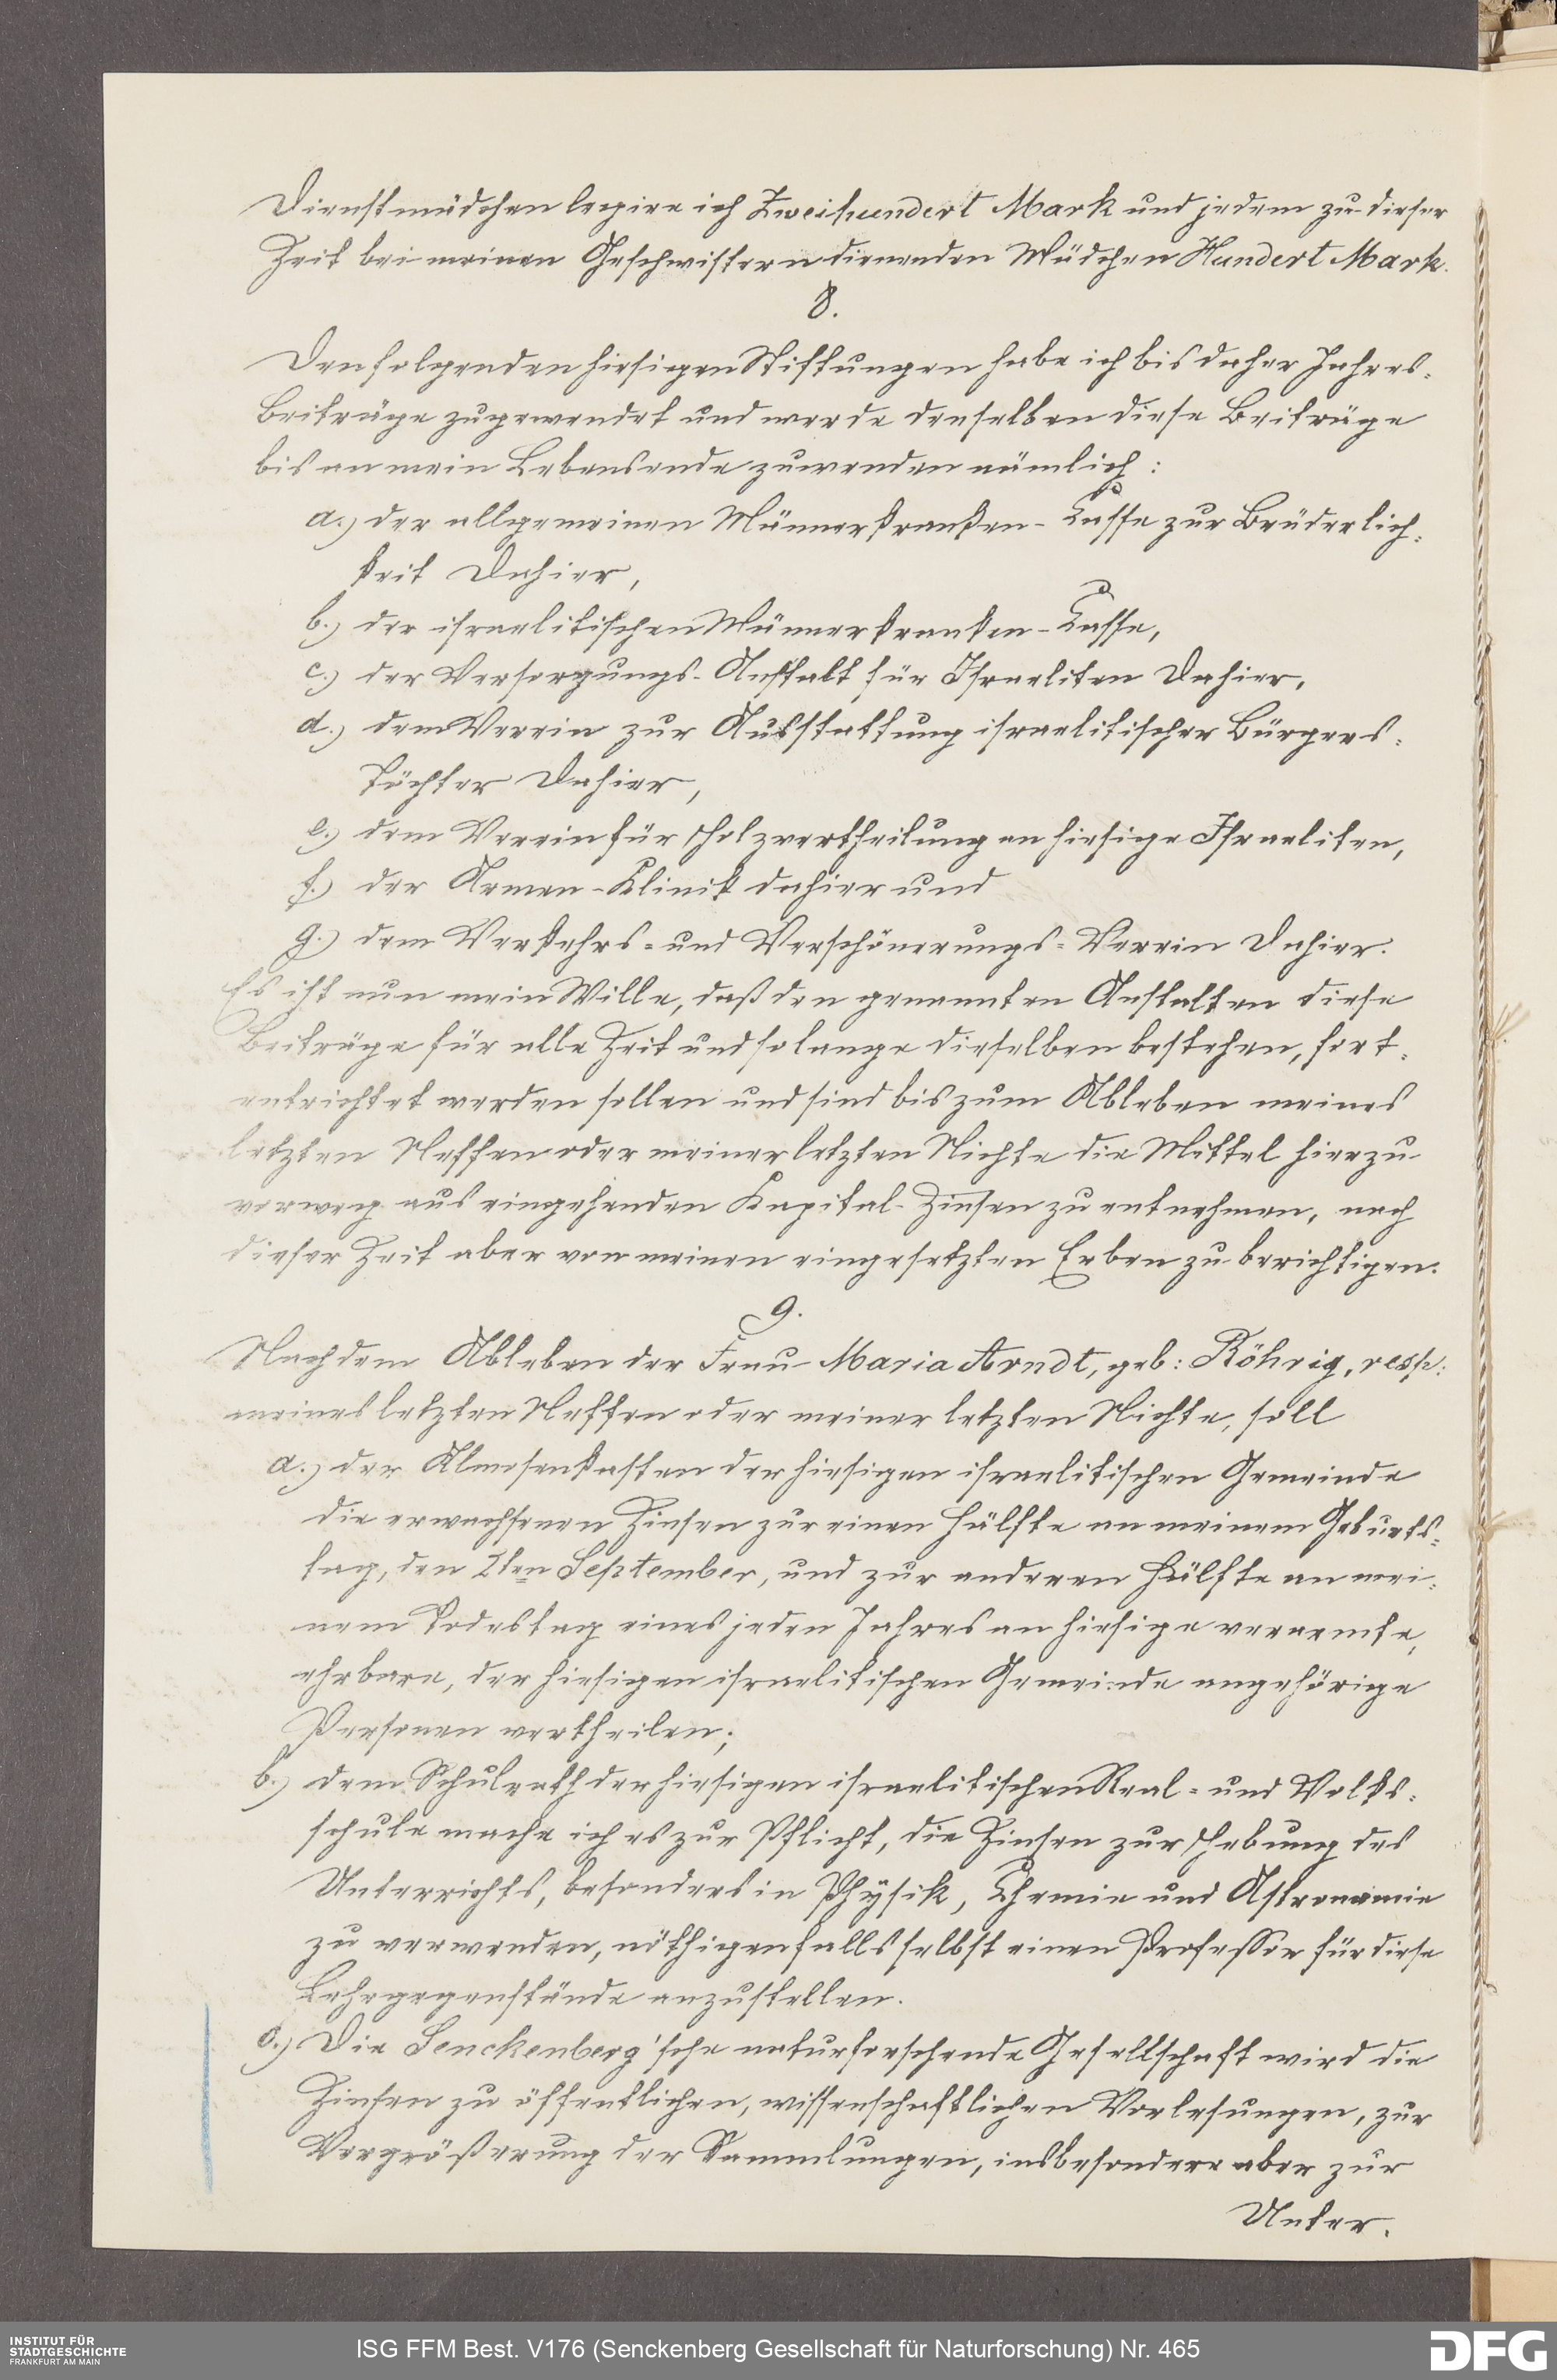 Dienstmädchen legire ich Zweihundert Mark und jedem zu dieser
Zeit bei meinen Geschwistern dienenden Mädchen Hundert Mark.
8.
Den folgenden hiesigen Stiftungen habe ich bis daher Jahres-
Beiträge zugewendet und werde denselben diese Beiträge
bis an mein Lebensende zuwenden nämlich:
a.) der allgemeinen Männerkranken-Casse zur Brüderlich-
keit dahier,
b.) der israelitischen Männerkranken-Casse,
c.) der Versorgungs-Anstalt für Israeliten dahier,
d.) dem Verein zur Ausstattung israelitischer Bürgers-
töchter dahier,
e.) dem Verein für Holzvertheilung an hiesige Israeliten,
f.) der Armen-Klinik dahier und
g.) dem Verkehrs- und Verschönerungs-Verein dahier.
Es ist nun mein Wille, daß den genannten Anstalten diese
Beiträge für alle Zeit und solange dieselben bestehen, fort-
entrichtet werden sollen und sind bis zum Ableben meines
letzten Neffen oder meiner letzten Nichte die Mittel hierzu
vorweg aus eingehenden Kapital-Zinsen zu entnehmen, nach
dieser Zeit aber von meinen eingesetzten Erben zu berichtigen.
9.
Nach dem Ableben der Frau Maria Arndt, geb: Röhrig, resp:
meines letzten Neffen oder meiner letzten Nichte, soll
a.) der Almosenkasten der hiesigen israelitischen Gemeinde
die erwachsenen Zinsen zur einen Hälfte an meinem Geburts-
tag, den 2ten September, und zur anderen Hälfte an mei-
nem Todestag eines jeden Jahres an hiesige verarmte,
ehrbare, der hiesigen israelitischen Gemeinde angehörige
Personen vertheilen;
b.) dem Schulrath der hiesigen israelitischen Real- und Volks-
schule mache ich es zur Pflicht, die Zinsen zur Hebung des
Unterrichts, besonders in Physik, Chemie und Astronomie
zu verwenden, nöthigenfalls selbst einen Professor für diese
Lehrgegenstände anzustellen.
c.) Die Senckenberg'sche naturforschende Gesellschaft wird die
Zinsen zu öffentlichen, wissenschaftlichen Vorlesungen, zur
Vergrößerung der Sammlungen, insbesondere aber zur
Unter-
INSTITUT FÜR
STADTGESCHICHTE
FRANKFURT AM MAIN
ISG FFM Best. V176 (Senckenberg Gesellschaft für Naturforschung) Nr. 465
DFG